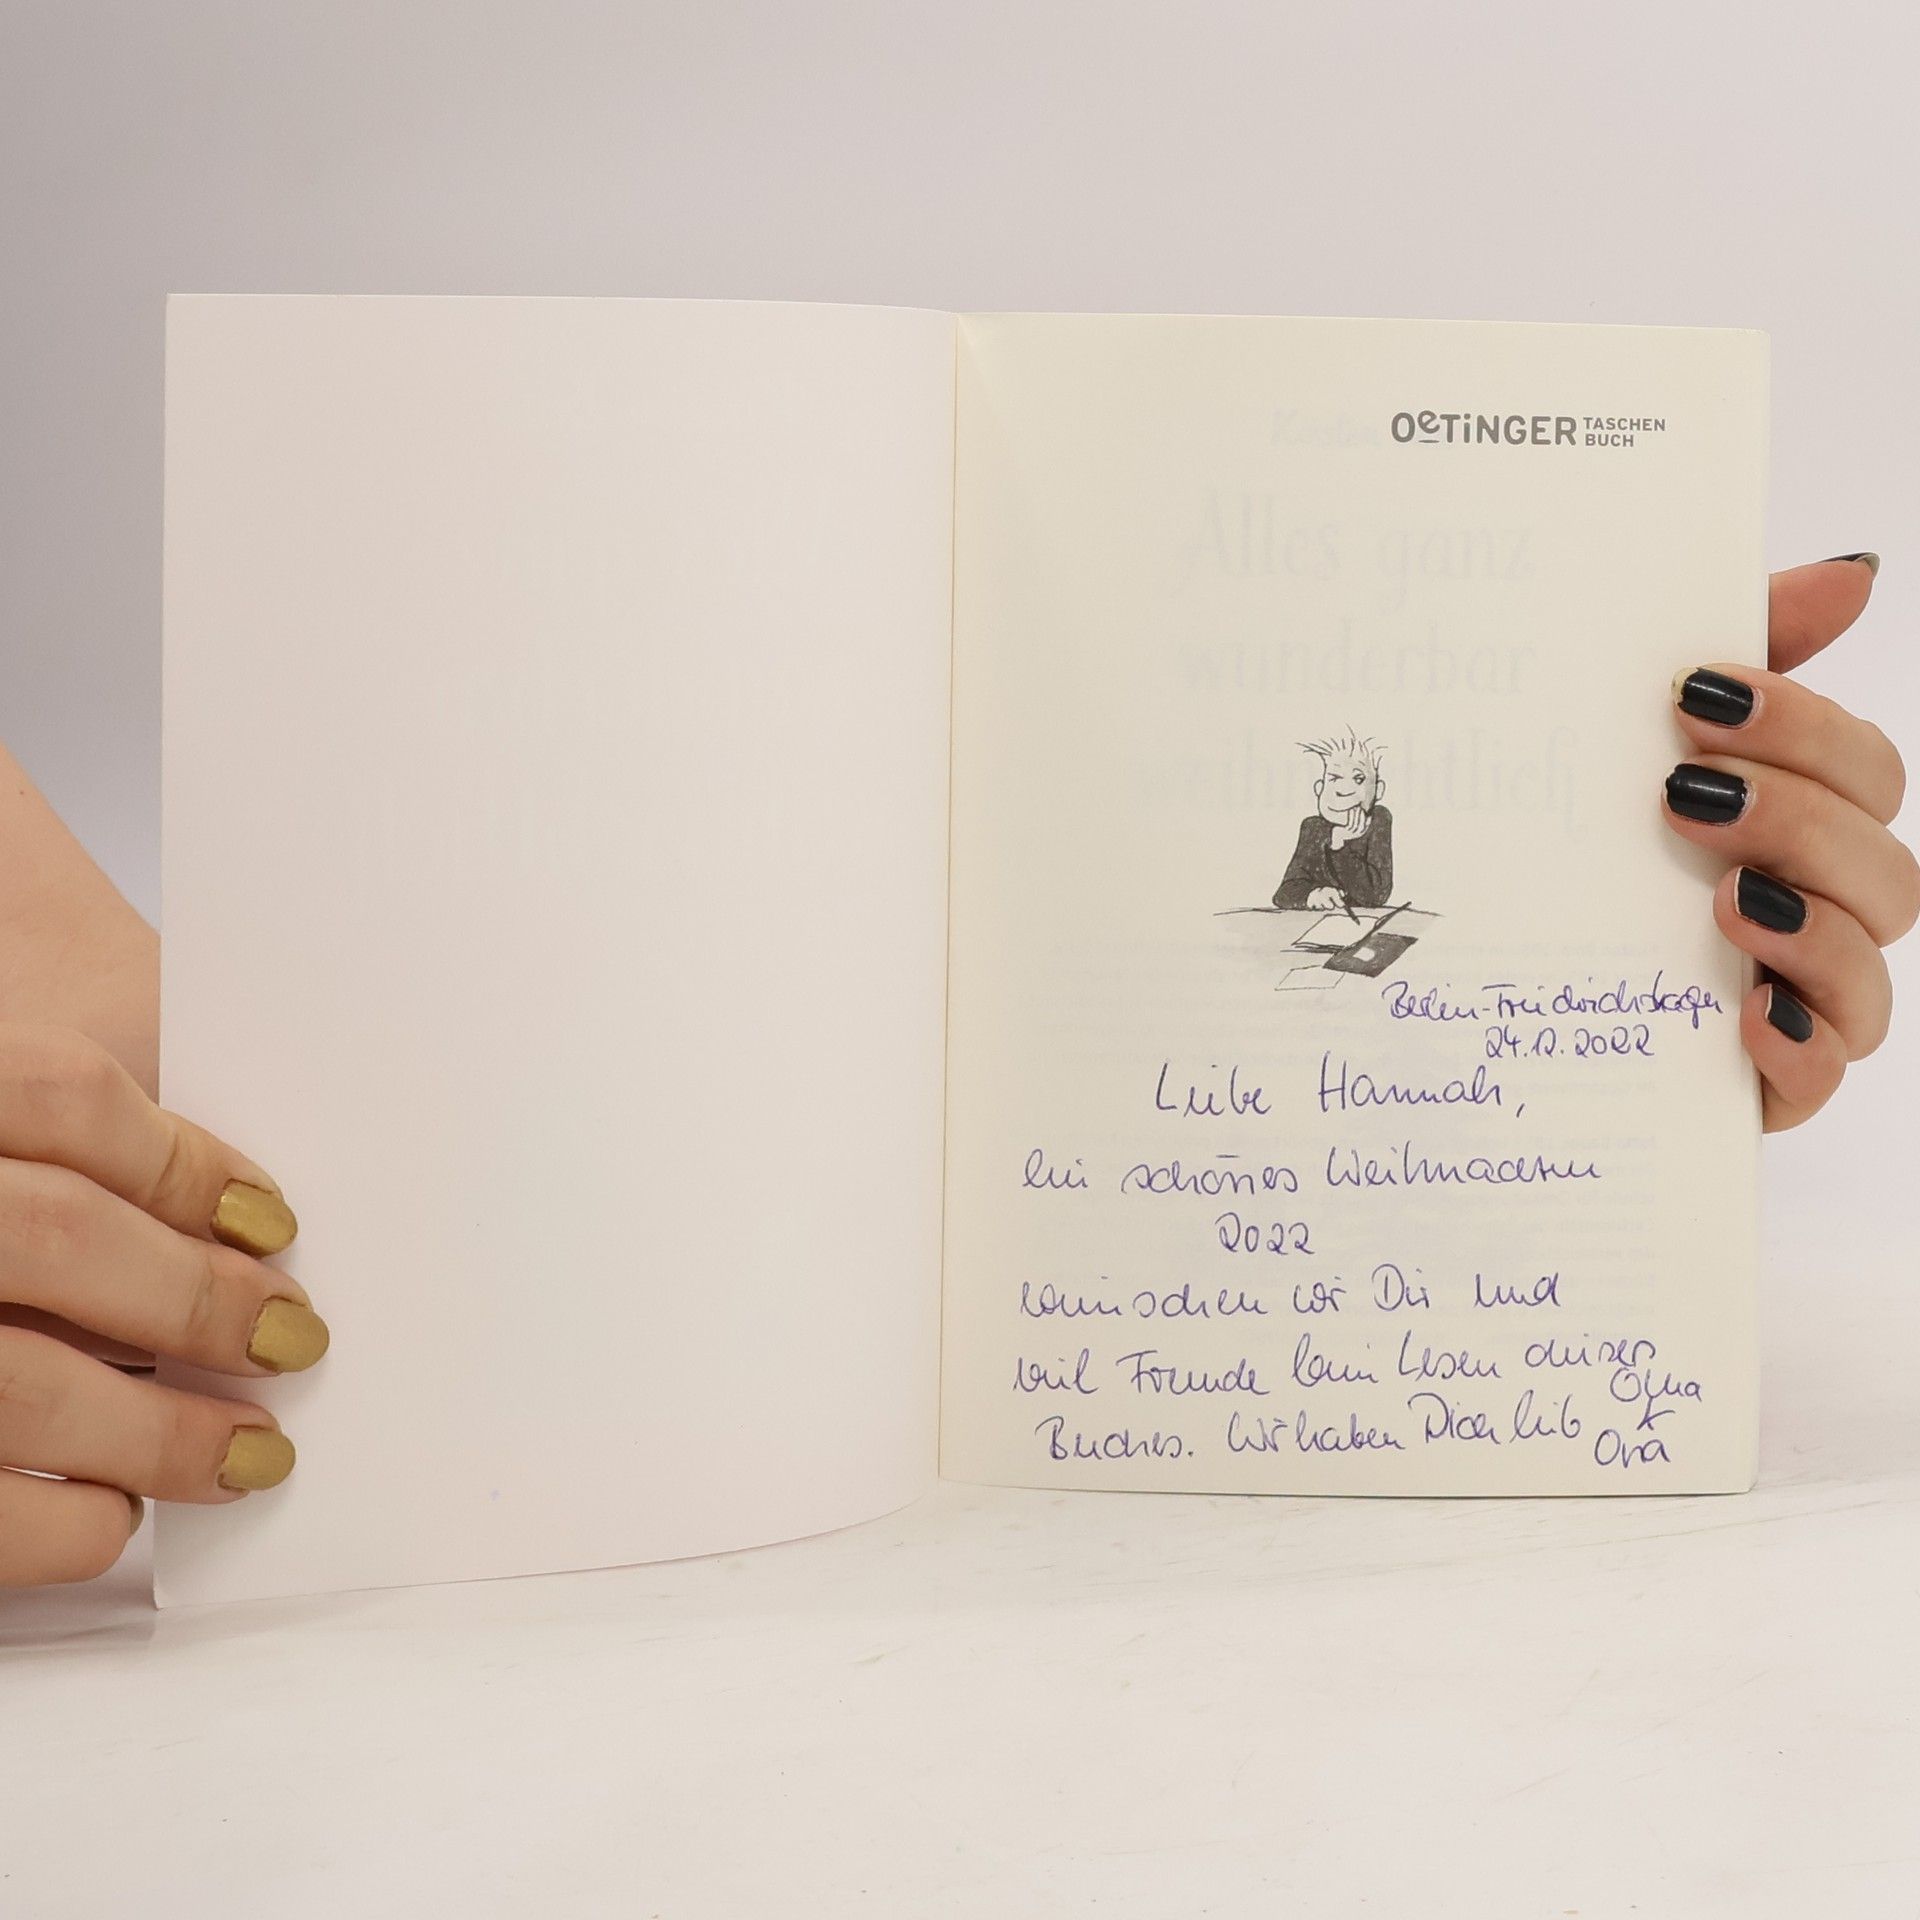 OETINGER TASCHEN
BUCH
Alles ganz
wunderbar
weihnachtlich
Berlin-Friedrichshagen
24.12.2022
Liebe Hannah,
ein schönes Weihnachten
2022
wünschen wir Dir und
viel Freude beim Lesen dieses
Buches. Wir haben Dich lieb
Oma
+
Opa